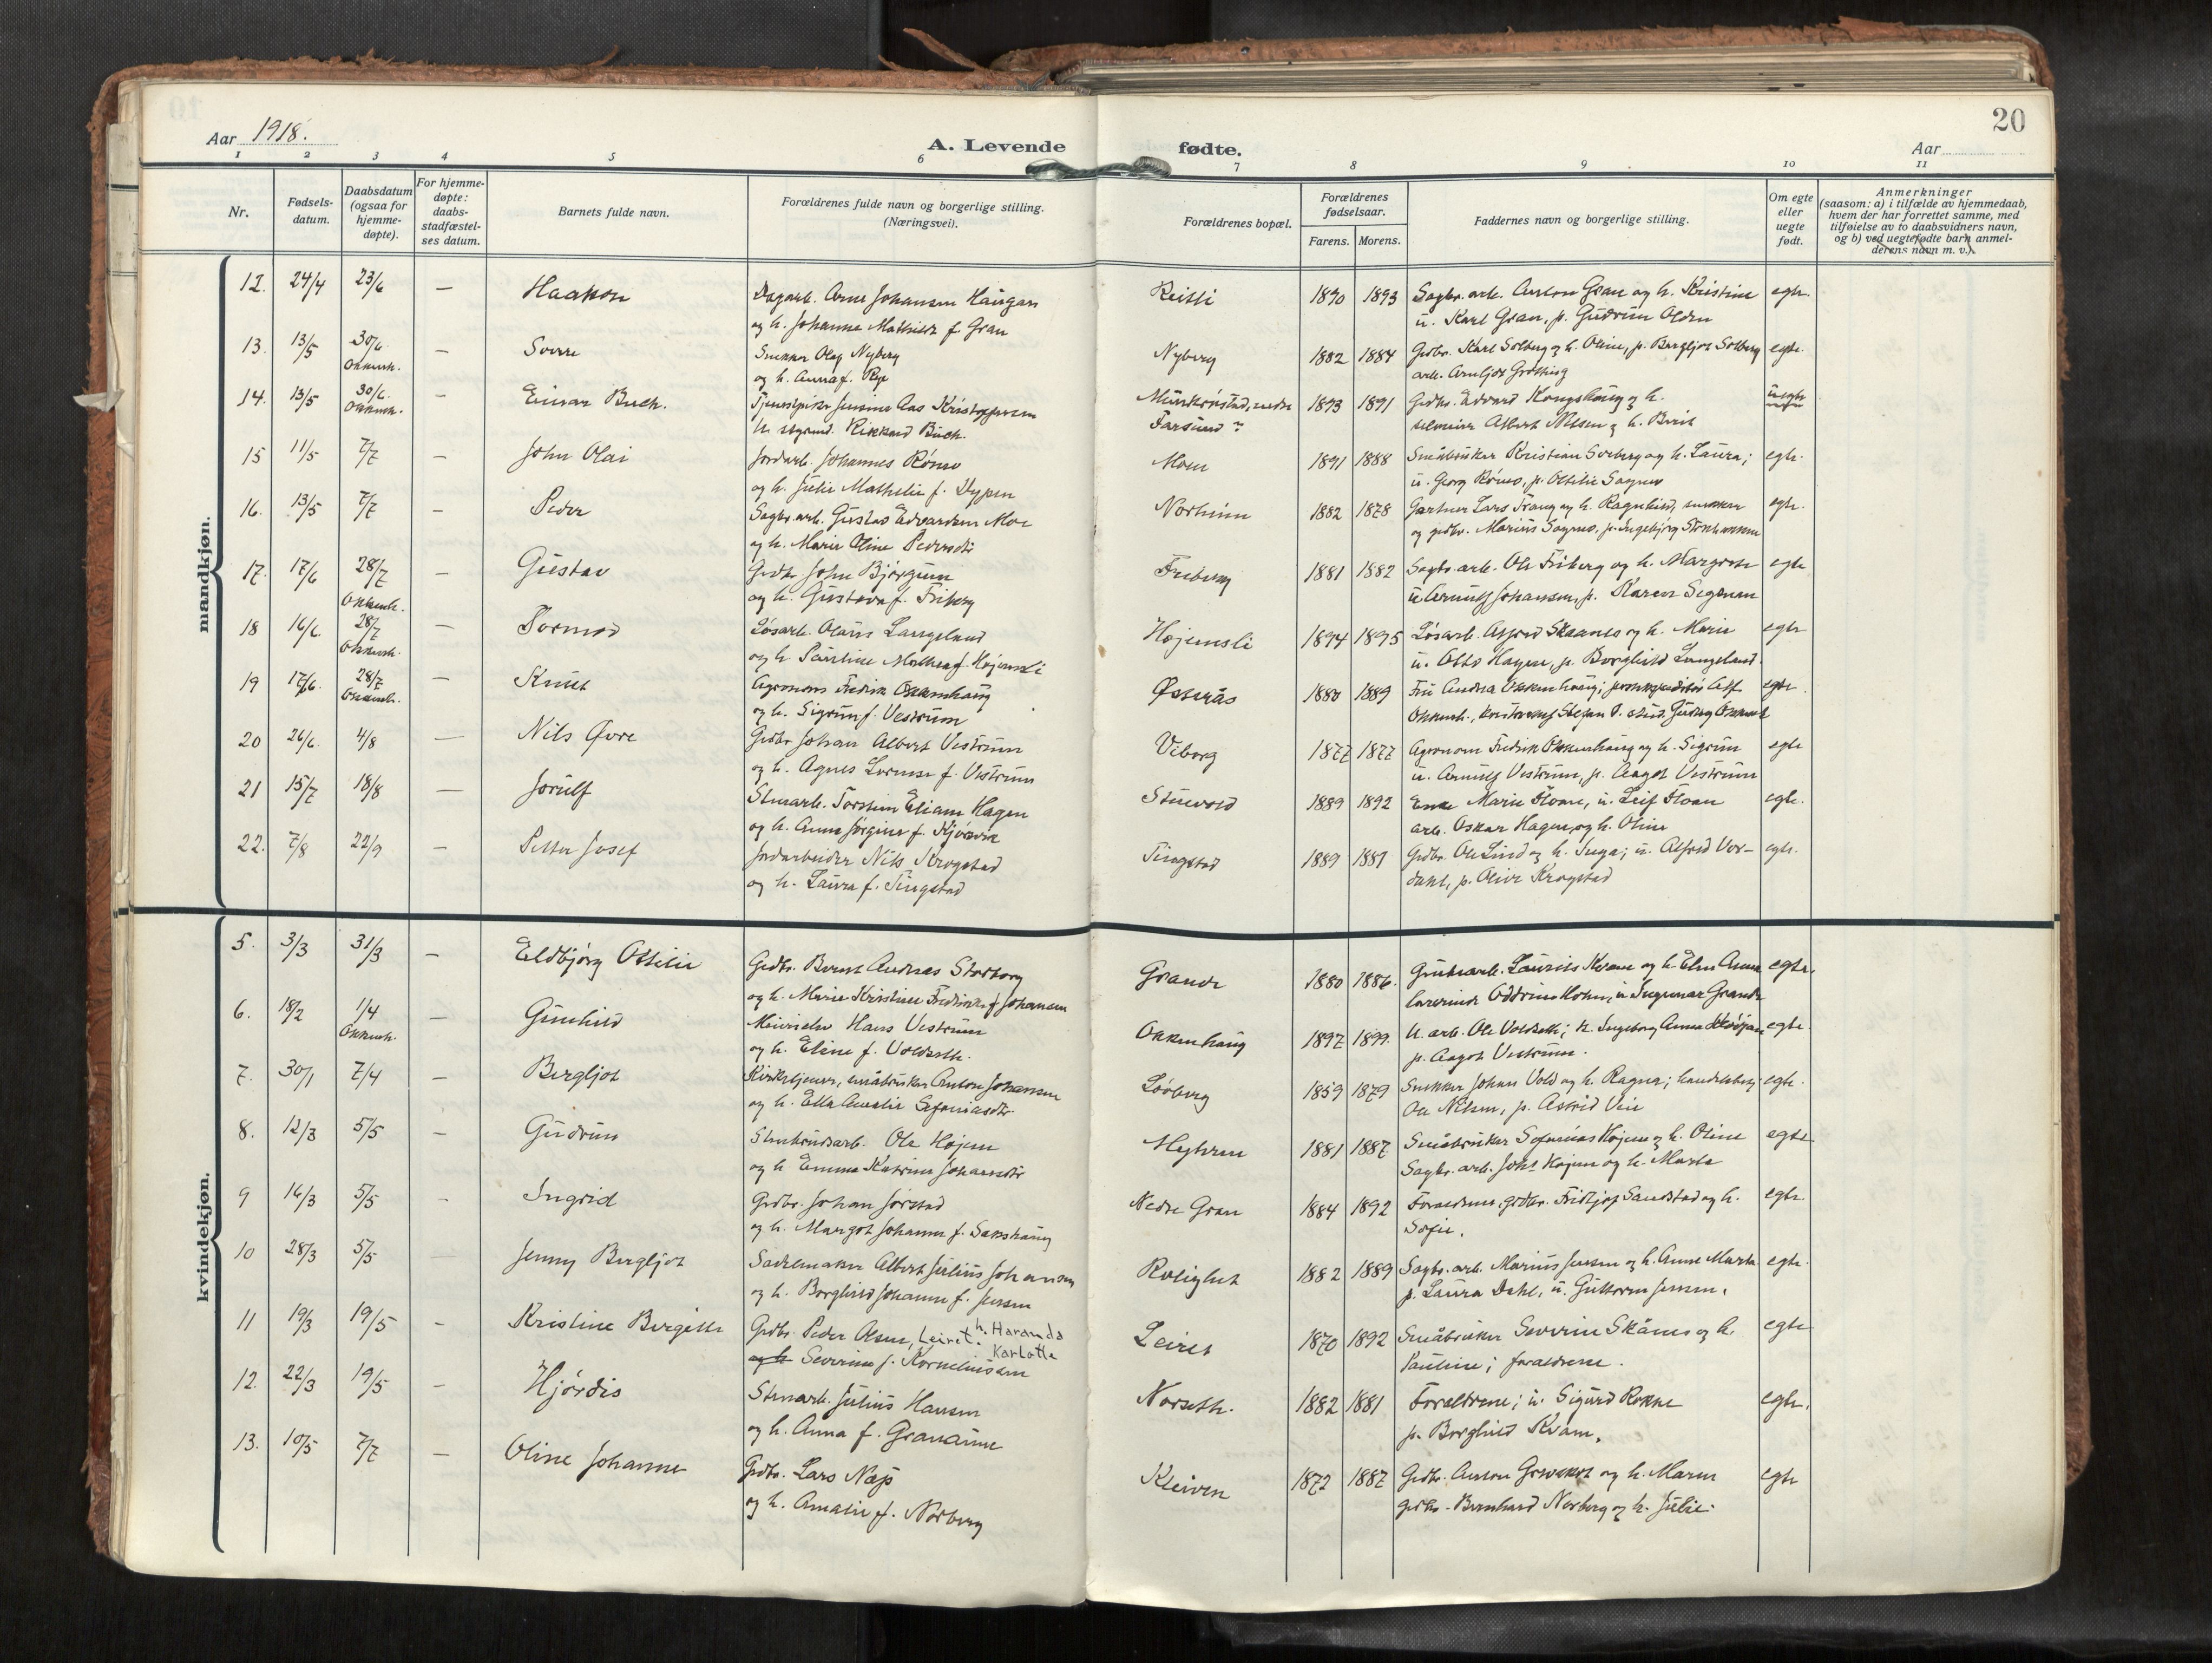 20
Aar 1918.
A. Levende fødte.
Aar
1 2 3 4 5 6 7 8 9 10 11
Nr.
Fødsels-
datum.
Daabsdatum
(ogsaa for
hjemme-
døpte).
For hjemme-
døpte:
daabs-
stadfæstel-
ses datum.
Barnets fulde navn.
Forældrenes fulde navn og borgerlige stilling.
(Næringsvei).
Forældrenes bopæl.
Forældrenes
fødselsaar.
Farens. Morens.
Faddernes navn og borgerlige stilling.
Om egte
eller
uegte
født.
Anmerkninger
(saasom: a) i tilfælde av hjemmedaab,
hvem der har forrettet samme, med
tilføielse av to daabsvidners navn,
og b) ved uegtefødte barn anmel-
derens navn m. v.).
mandkjøn.
12. 24/4 23/6 — Haakon Dagarb. Arne Johansen Haugan Reitli 1890 1893 Sagbr. arb. Anton Gran og h. Kristine egte.
og h. Johanna Mathilde f. Gran u. Karl Gran, p. Gudrun Olden
13. 13/5 30/6 — Sverre Snekker Olaf Nyberg Nyberg 1882 1884 Grdbr. Karl Solberg og h. Oline, p. Bergljot Solberg egte.
Okkenh. og h. Anna f. Rye arb.
14. 13/5 30/6 — Einar Buch. Tjenestepike Jensine Aas Kristoffersen 1893 1891 Grdbr. Edvard Kongshaug og h. uegte
Okkenh. U. styrmd. Rikkard Buch. Farsund ? Albert Nilsen og h. Berit
15 11/5 7/7 — John Olai Jordarb. Johannes Rømo Moen 1891 1888 Småbruker Kristian Sorberg og h. Laura; egte.
og h. Julie Mathilie f. Dypen u. Georg Rømo, p. Ottilie Sagmo
16. 13/5 7/7 — Peder Sagbr. arb. Gustav Edvardsen Moe Norheim 1882 1878 Gartner Lars Trang og h. Ragnhild, snekker egte.
og h. Marie Oline Pedersdtr og grdbr. Marius Sagmo, p. Ingebjørg
17. 17/6 28/7 — Gustav Grdbr John Bjørgum Friberg 1881 1882 Sagbr. arb. Ole Friberg og h. Margrete egte
Okkenh. og h. Gustava f. Friberg u. Arnulf Johansen, p. Karen Segtnan
18 16/6. 28/7 — Tormod Løsarb. Olaus Langeland Højemsli 1894 1895 Løsarb. Alfred Skaanes og h. Marie egte
Okkenh. og h. Pauline Mathea f. Højemsli u. Otto Hagen, p. Borghild Langeland.
19 17/6. 28/7 — Knut Agronom Fredrik Okkenhaug Østerås 1880 1889 Fru Andrea Okkenhaug; Alf egte.
Okkenh. og h. Sigrun f. Vestrum Okkenh.,
20 26/6. 4/8 — Nils Øvre Grdbr Johan Albert Vestrum Viborg 1877 1877 Agronom Fredrik Okkenhaug og h. Sigrun egte
og h. Agnes Lornise f. Vestrum u. Arnulf Vestrum, p. Aagot Vestrum
21 15/7 18/8 — Jorulf Stenarb. Torstein Eliam Hagen Stuevold 1889 1892 Enke Marie Floan, u. Leif Floan egte.
og h. Anna Jørgine f. Kjøsvik arb. Oskar Hagen og h. Oline
22. 7/8 22/9 — Petter Josef Jordarbeider Nils Krogstad Tingstad 1889 1887 Grdbr. Ole Lind og h. Inga; u. Alfred Vor- egte.
og h. Laura f. Tingstad dahl, p. Olive Krogstad
kvindekjøn.
5. 3/3 31/3 — Eldbjørg Ottilie Grdbr. Bernt Andreas Storborg Grande 1880 1886. Grubearb. Laurits Kvam og h. Elen Anna egte.
og h. Marie Kristine Fredrikke f. Johansen lærerinde Oddrun Holm, u. Ingemar Grande
6. 18/2 1/4 — Gunhild Meieridrv Hans Vestrum Okkenhaug 1897 1899. U. arb. Ole Voldseth; h. Ingeborg Anna egte.
Okkenh. og h. Eline f. Voldseth. p. Aagot Vestrum.
7. 30/1 7/4 — Bergljot Kirketjener, småbruker Anton Johansen Løvberg 1859 1879 Snekker Johan Vold og h. Ragna; handelsbetj egte.
og h. Ella Amalie Sefaniasdtr. Ole Nilsen, p. Astrid Vin
8. 12/3 5/5 — Gudrun Stenbrudsarb. Ole Højem Heglren 1881 1887 Småbruker Sefanias Højem og h. Oline egte
og h. Emma Katrine Johansdtr Sagbr. arb. Johs Højem og h. Marta
9 16/3 5/5 - Ingrid Grdbr. Johan Jørstad Nedre Gran 1884 1892 Forældrene, grdbr. Fridtjof Sandstad og h. egte.
og h. Margot Johanne f. Sakshaug Sofie.
10 28/3 5/5 — Jenny Bergljot Sadelmaker Albert Julius Johansen Rolighet 1882 1889 Sagbr. arb. Marius Jensen og h. Anne Marta egte.
og h. Borghild Johanne f. Jensen p. Laura Dahl, u. Guttorm Jensen.
11 19/3 19/5 - Kristine Bergitte Grdbr. Peder Olsen, Leiret. h. Haranda Karlotte Leiret 1870 1892 Småbruker Severin Skånes og h. egte
og h. Severine f. Korneliussen Pauline; forældrene.
12. 22/3 19/5 - Hjørdis Stenarb. Julius Hansen Norseth. 1882 1881 Forældrene; u. Sigurd Rokne egte.
og h. Anna f. Granaunn p. Borghild Kvam.
13. 10/5 7/7 — Oline Johanne Grdbr. Lars Næss Kleiven 1872 1887 Grdbr. Anton Grevskot og h. Maren egte
og h. Amalie f. Norberg grdbr. Bernhard Norberg og h. Julie.